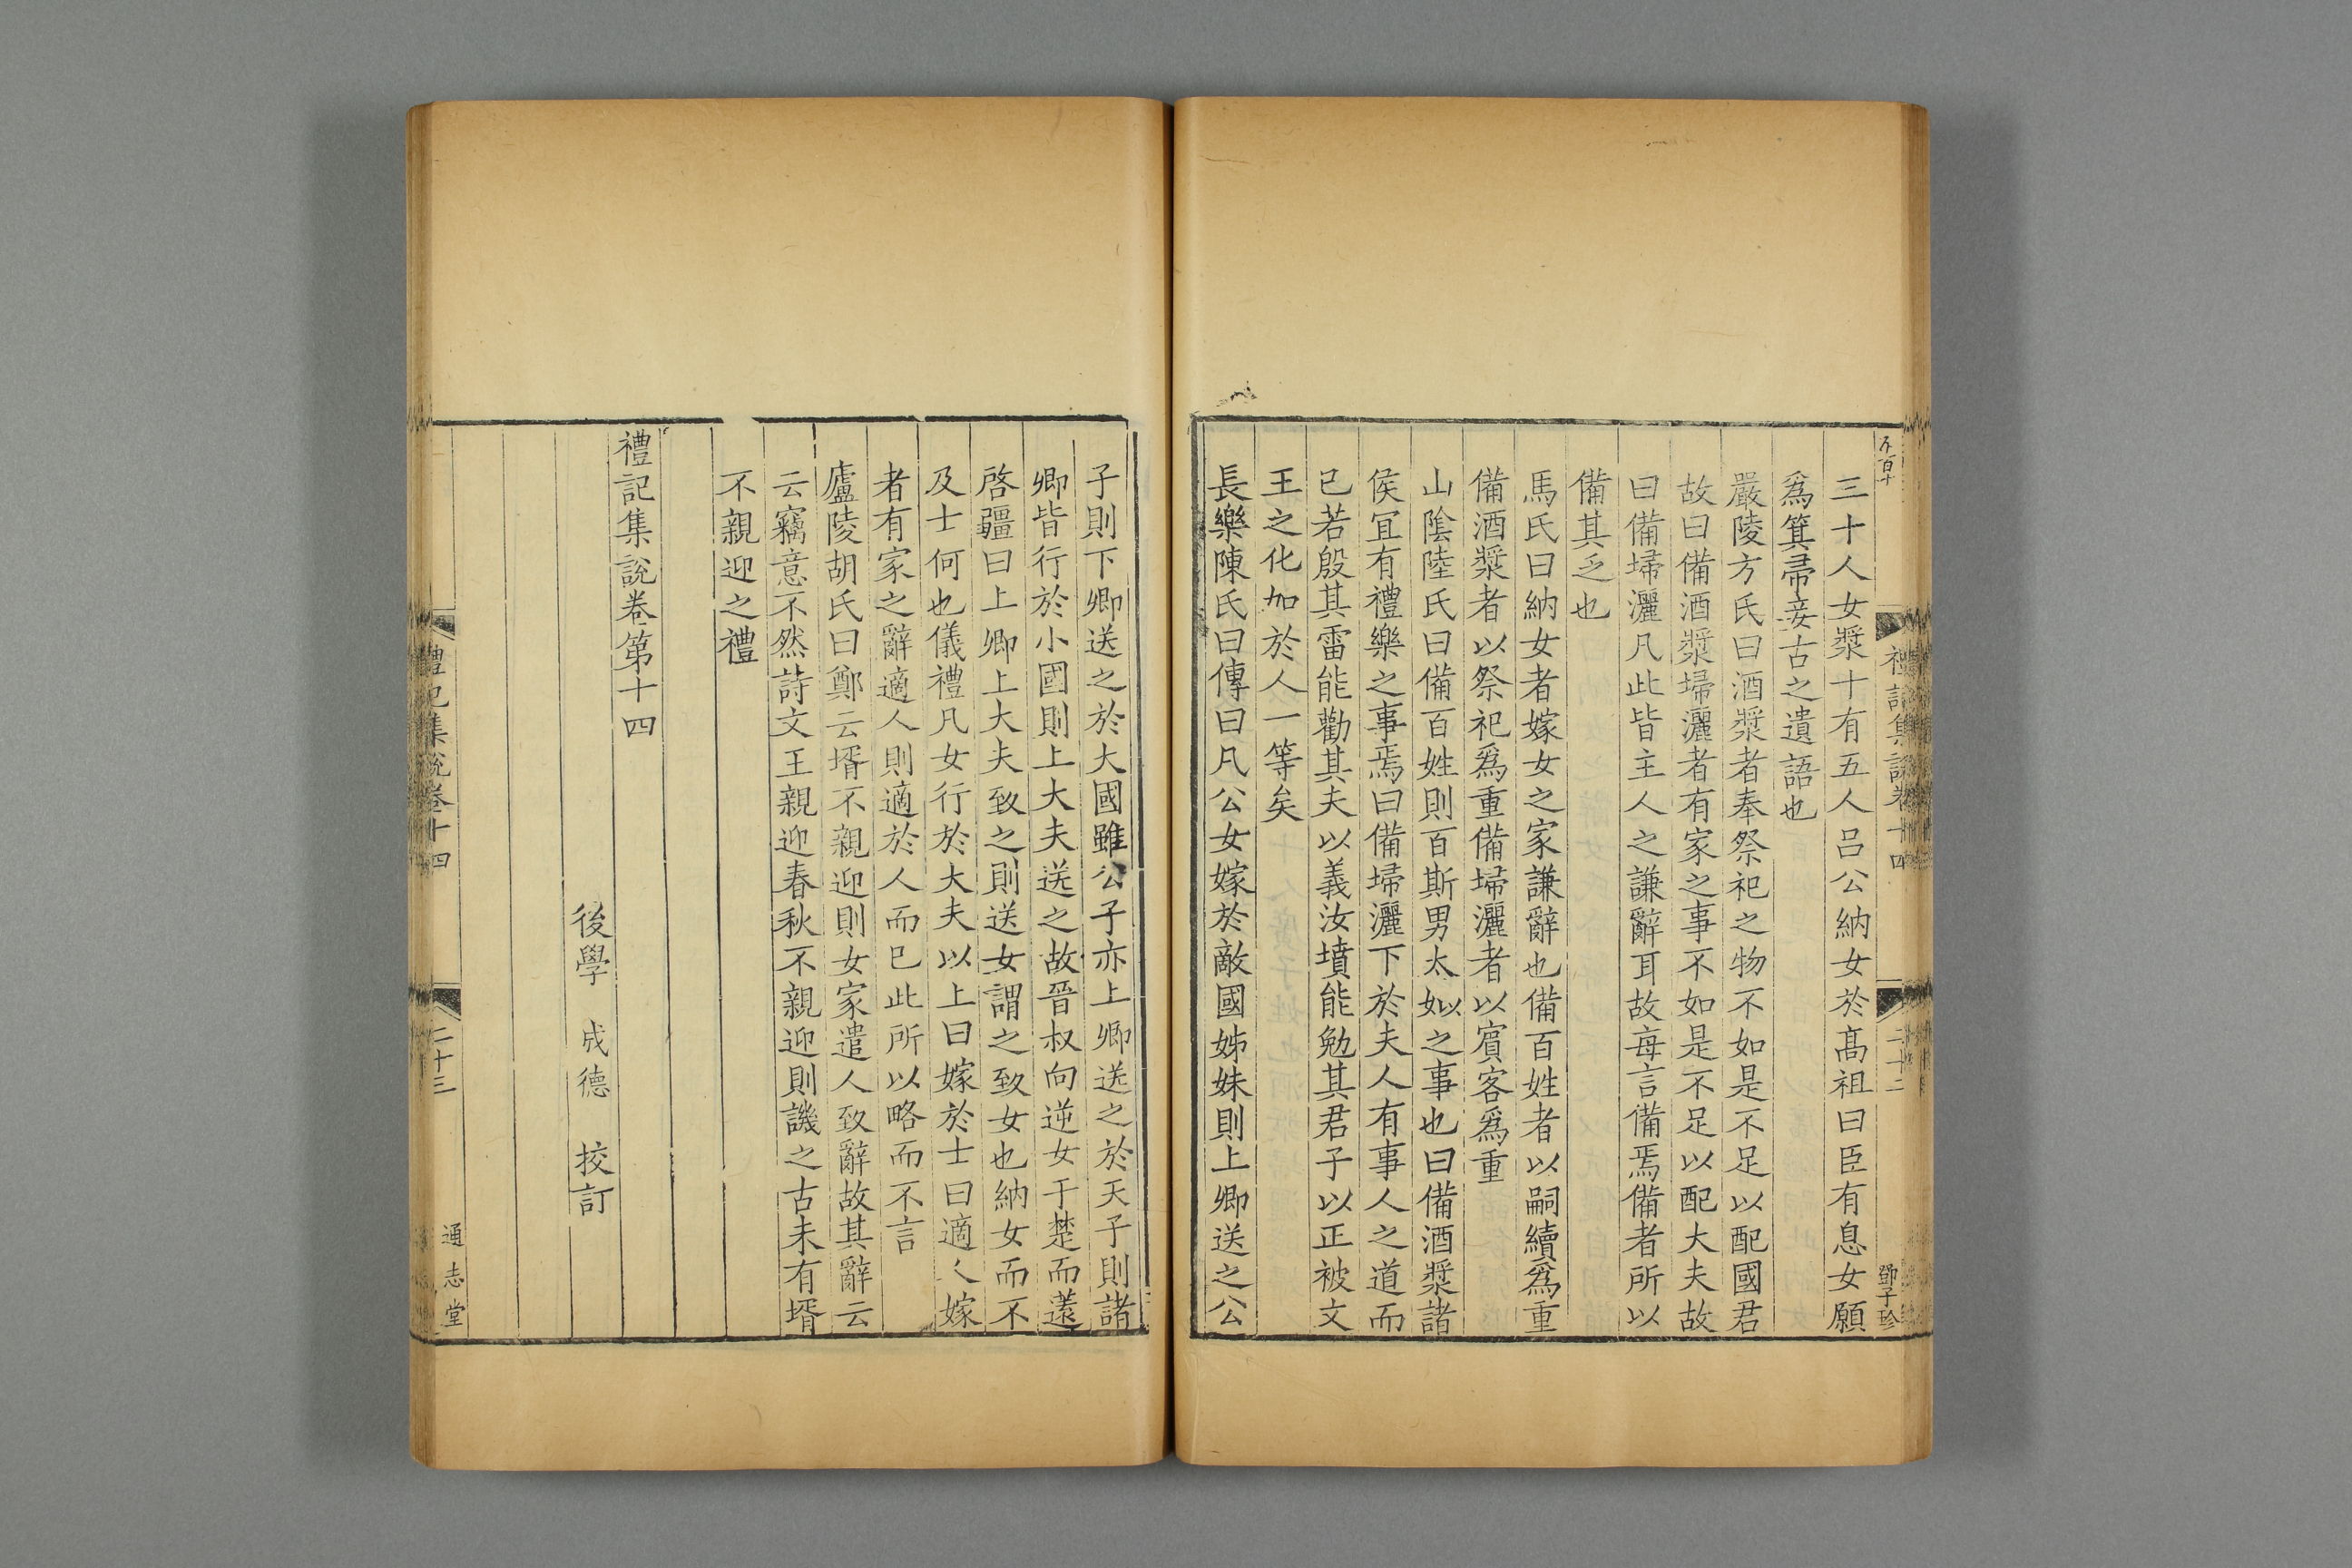 禮記集說卷十四
二十二
鄧子珍
三十人女漿十有五人呂公納女於髙祖曰臣有息女願
爲箕帚妾古之遺語也
嚴陵方氏曰酒漿者奉祭祀之物不如是不足以配國君
故曰備酒漿埽灑者有家之事不如是不足以配大夫故
曰備埽灑凡此皆主人之謙辭耳故每言備焉備者所以
備其乏也
馬氏曰納女者嫁女之家謙辭也備百姓者以嗣續爲重
備酒漿者以祭祀爲重備埽灑者以賓客爲重
山隂陸氏曰備百姓則百斯男太姒之事也曰備酒漿諸
侯宜有禮樂之事焉曰備埽灑下於夫人有事人之道而
已若殷其雷能勸其夫以義汝墳能勉其君子以正被文
王之化加於人一等矣
長樂陳氏曰傳曰凡公女嫁於敵國姊妹則上卿送之公
子則下卿送之於大國雖公子亦上卿送之於天子則諸
卿皆行於小國則上大夫送之故晉叔向逆女于楚而薳
啓疆曰上卿上大夫致之則送女謂之致女也納女而不
及士何也儀禮凡女行於大夫以上曰嫁於士曰適人嫁
者有家之辭適人則適於人而已此所以略而不言
廬陵胡氏曰鄭云壻不親迎則女家遣人致辭故其辭云
云竊意不然詩文王親迎春秋不親迎則譏之古未有壻
不親迎之禮
禮記集說卷第十四
後學 成德 挍訂
禮記集說卷十四
二十三
通志堂